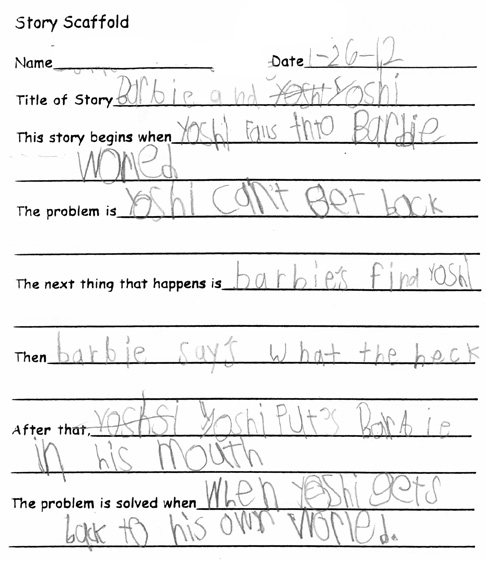 Story Scaffold
Name Date 1-26-12
Title of Story Barbie and Yosht Yoshi
This story begins when Yoshi Falls thto Barbie
woned
The problem is Yoshi can't get back
The next thing that happens is barbie's find Yoshi
Then barbie say's what the heck
After that, Yoshsi Yoshi Put's Barbie
in his mouth
The problem is solved when When Yeshi gets
back to his own worled.